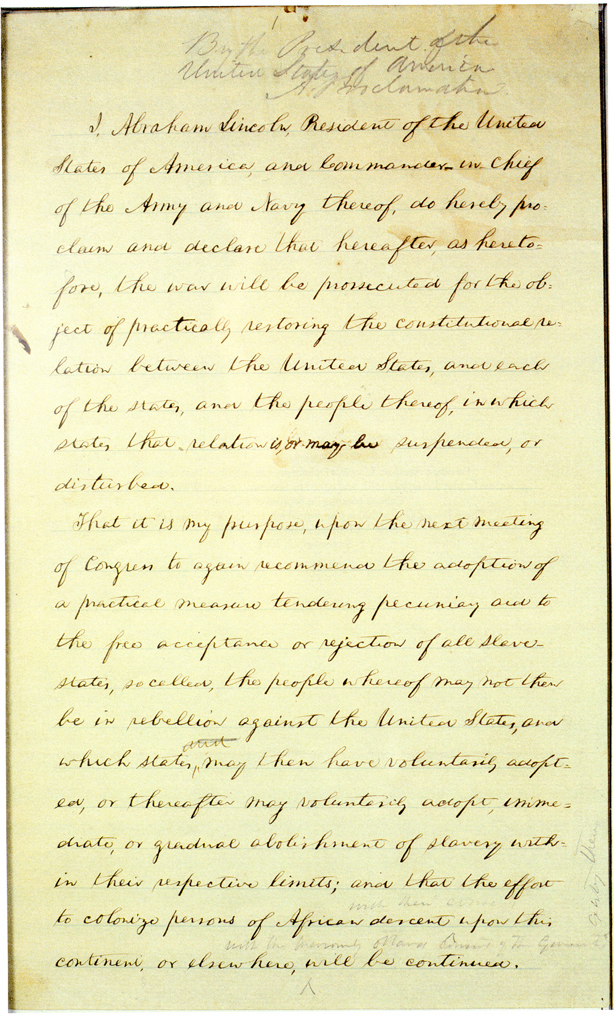 By the President of the
United States of America
A Proclamation.
I, Abraham Lincoln, President of the United
States of America, and Commander-in-Chief
of the Army and Navy thereof, do hereby pro-
claim and declare that hereafter, as hereto-
fore, the war will be prossecuted for the ob-
ject of practically restoring the constitutional re-
lation between the United States, and each
of the states, and the people thereof, in which
states that relation is, or may be suspended, or
disturbed.
That it is my purpose, upon the next meeting
of Congress to again recommend the adoption of
a practical measure tendering pecuniary aid to
the free acceptance or rejection of all slave-
states, so called, the people whereof may not then
be in rebellion against the United States, and
and
which states, may then have voluntarily adopt-
ed, or thereafter may voluntarily adopt, imme-
diate, or gradual abolishment of slavery with-
in their respective limits; and that the effort
with their consent
to colonize persons of African descent upon this
continent, or elsewhere, will be continued.